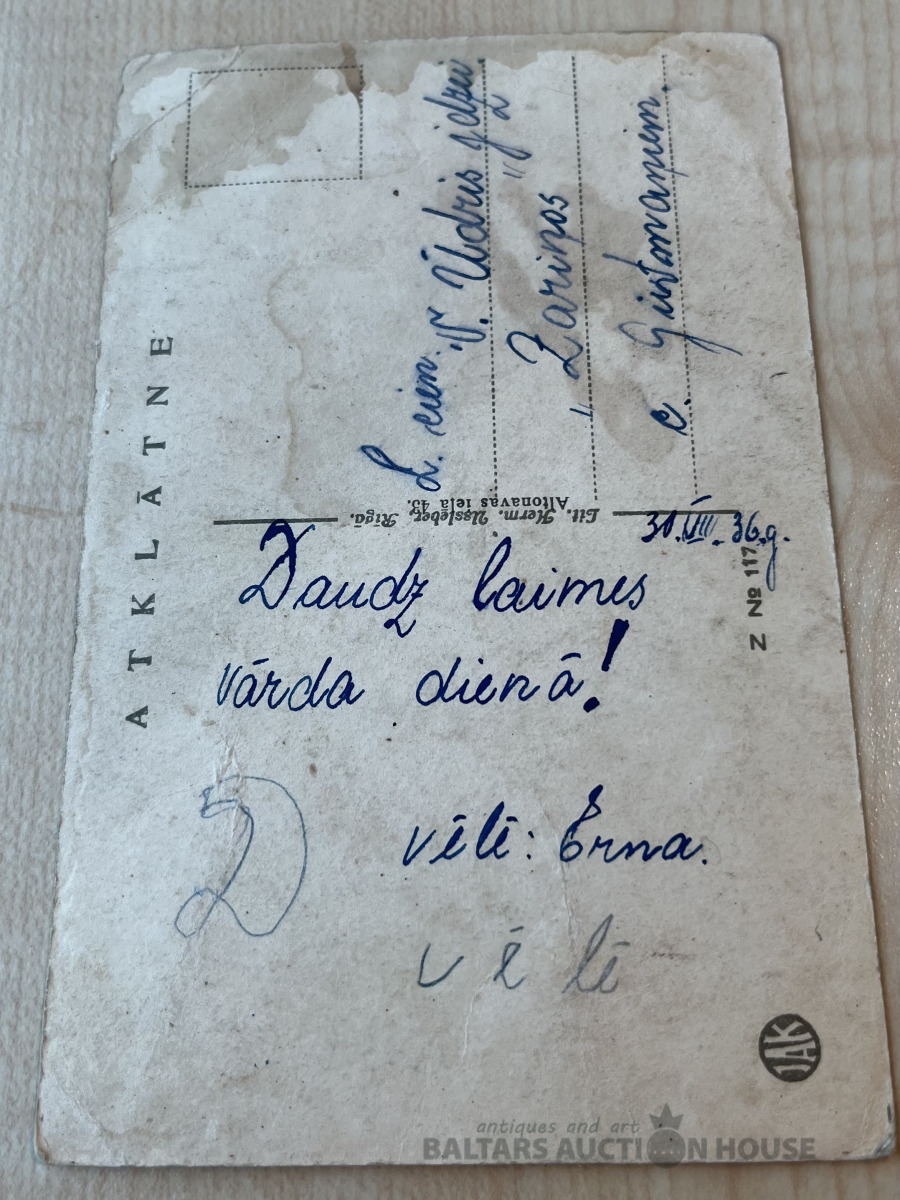 ATKLĀTNE
L. cien. N. Ūdris jdzei
"Zariņos"
c. Gustmaņiem.
Lit. Herm. Ussleber, Rīgā.
Altonavas ielā 43.
31. VIII. 36.g.
Z № 117
Daudz laimes
vārda dienā!
vēlē: Erna.
D
vēlē
JAK
antiques and art
BALTARS AUCTION HOUSE